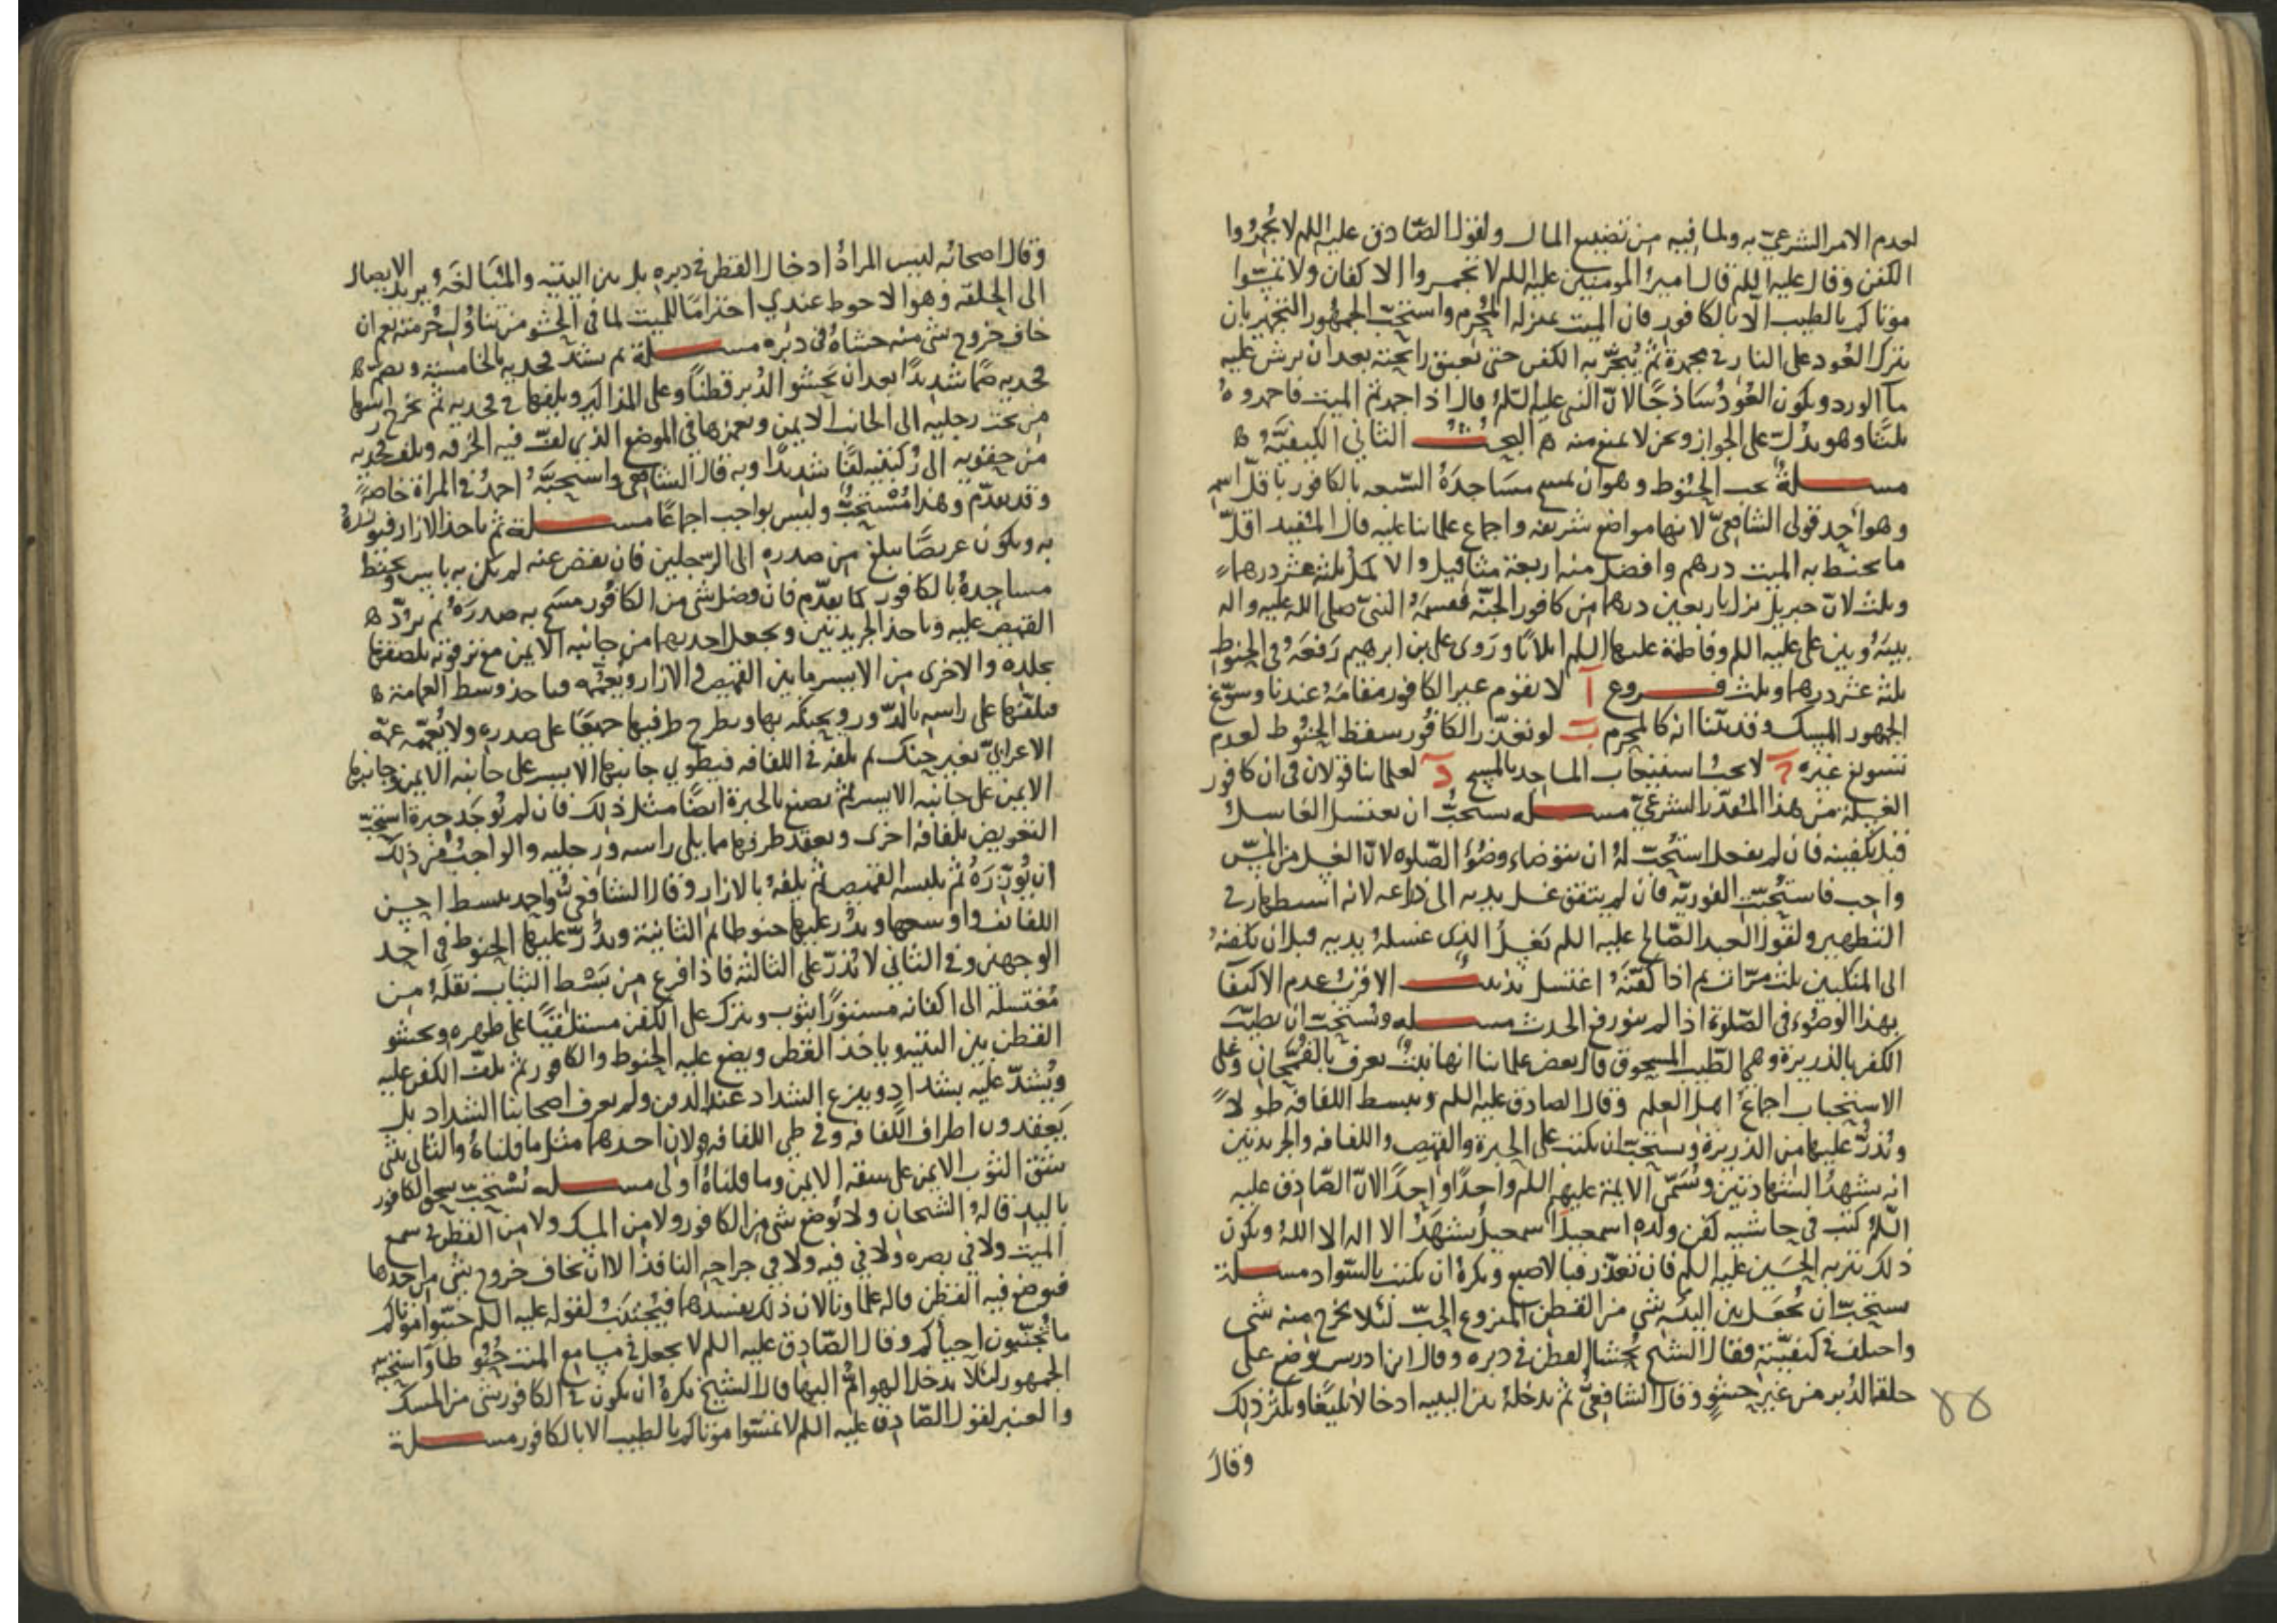 لعدم الامر الشرعيّ به ولما فيه من تضييع المال ولقول الصّادق عليه اللم لا تُجمّروا
الكفن وقال عليه اللم قال امير المومنين عليه اللم لا تجمروا الاكفان ولا تمسّوا
موتاكم بالطيب الا بالكافور فان الميت بمنزلة المُحرم واستحبّ الجمهور التجمير بان
يترك العُود على النار في مجمرة ثمّ يُبخّر به الكفن حتى تعبق رائحته بعد ان يرش عليه
مآ الورد ويكون العُودُ سَاذجًا لانّ النبي عليه السّلم قال اذا اجمرتم الميت فاجمروه
ثلثًا وهو يدُلّ على الجواز ونحن لا نمنع منه ه البحـــث الثاني الكيفيّة ه
مســـلة يجب الحنُوط وهو ان يمسح مسَاجدَهُ السّبعه بالكافور باقلّ اسم
وهو احد قولى الشافعيّ لانها مواضع شريفة واجماع علمائنا عليه قال المفيد اقلّ
ما يحنّط به الميت درهم وافضل منه اربعة مثاقيل والاكمل ثلثة عشر درهما
وثلث لانّ جبريل نزل باربعين درهما من كافور الجنّة فقسمَهُ النبيّ صلى الله عليه واله
بينَهُ وبين على عليه اللم وفاطمة عليها اللم اثلاثًا ورَوى على بن ابرهيم رَفعَهُ في الحنوط
ثلثة عشر درهما وثلث فـــروع آ لا يقوم غير الكافور مقامَهُ عندنا وسوّغ
الجمهور المسك وقد بيّنا انه كالمحرم ب لو تعذّر الكافُور سقط الحنُوط لعدم
تسويغ غيره ج لا يجب استيعاب المساجد بالمسح د لعلمائنا قولان في ان كافور
الغسلة من هذا المقدّر الشرعيّ مســـله يستحبّ ان يغتسل الغاسل
قبل تكفينه فان لم يفعل استُحبّ لهُ ان يتوضاء وضُوء الصّلوة لانّ الغسل من المسّ
واجب فاستُحبّ الفوريّة فان لم يتفق غسل يديه الى ذراعه لانه استظهار في
التطهير ولقول العبد الصّالح عليه اللم يَغسلُ الذى غسلهُ يديه قبل ان يكفنهُ
الى المنكبين ثلث مرّات ثم اذا كفّنَهُ اغتسل تذنيـــب الاقربُ عدم الاكتفآ
بهذا الوضُوء في الصّلوة اذا لم ينو رفع الحدث مســـله ويُستحبّ ان يطيّب
الكفن بالذريرة وهي الطّيب المسحوق قال بعض علمائنا انها نبتٌ يعرف بالقُمّحان وعلى
الاستحباب اجماع اهل العلم وقال الصادق عليه اللم ويبسط اللفافة طولاً
ويُذرّ عليها من الذريرة ويستحبّ ان يكتب على الحبرة والقميص واللفافه والجريدتين
انه يشهدُ الشهادتين ويُسَمّى الائمة عليهم اللم واحدًا واحدًا لانّ الصّادق عليه
السّلم كتب في حاشيه كفن ولده اسمعيل اسمعيل يشهدُ الا اله الا اللهُ ويكون
ذلك بتربه الحُسَين عليه اللم فان تعذّر فبالاصبع ويكرهُ ان يكتب بالسّواد مســـلة
يستحبّ ان يُجعَل بين اليَيه شي من القطن المنزوع الحبّ لئلا يخرج منه شي
واختلف في كيفيّته فقال الشيخ يُحشا القطن في دبره وقال ابن ادريس يوضع على
حلقة الدُبر من غير حشوٍ وقال الشافعيّ ثم يدخلهُ بين الييه ادخالا بليغًا ويكثر ذلك
وقال
٨٨
وقال اصحابُه ليس المرادُ ادخال القطن في دبره بل بين اليتيه والمبَالغَه ويريد الايصال
الى الحلقة وهو الاحوط عندي احترامًا للميت لما في الحشو من تناوُل حُرمته نعم ان
خاف خروج شي منه حشاهُ في دُبُره مســـلة ثم يشدّ فخذيه بالخامسة ويضم
فخذيه ضمًا شديدًا بعد ان يحشو الدُبر قطنًا وعلى المذاكير ويلفها في فخذيه ثم يخرج راسها
من تحت رجليه الى الجانب الايمن ويغمزها في الموضع الذي لفّت فيه الخرقه ويلف فخذيه
من حِقويه الى رُكبتيه لفًّا شديدًا وبه قال الشافعي واستحبّهُ احمدُ في المراة خاصةً
وقد تقدّم وهذا مُستحبٌّ وليس بواجب اجماعًا مســـلة ثمّ ياخذ الازار فيوزرهُ
به ويكون عريضًا يبلغ من صدره الى الرجلين فان نقض عنه لم يكن به باس ويحنط
مساجدهُ بالكافور كما تقدّم فان فضل شي من الكافُور مسح به صدرَهُ ثم يردّ ه
القميص عليه وياخذ الجريدتين ويجعل احديهما من جانبه الايمن مع ترقوته يلصقها
بجلده والاخرى من الايسر ما بين القميص والازار ويُعمّمه فياخذ وسط العمامة ه
فيلفّها على راسه بالدّور ويحنكه بها ويطرح طرفيها جميعًا على صدره ولا يُعمّمه عمّة
الاعرابيّ بغير حنك ثم يلفه في اللفافه فيطوي جانبها الايسر على جانبه الايمن وجانبها
الايمن على جانبه الايسر ثم يصنع بالحبرة ايضًا مثل ذلك فان لم تُوجَد حبرة استحبّ
التعويض بلفافة اخرى ويعقد طرفها مما يلي راسه ورجليه والواجبُ من ذلك
ان يُوزّرَهُ ثمّ يلبسه القميص ثم يلفهُ بالازار وقال الشافعي واحمد يبسط احسن
اللفائف واوسعها ويذُر عليها حنوطا ثم الثانية ويذُرّ عليها الحنُوط في احد
الوجهين وفي الثاني لا يُذرّ على الثالثة فاذا فرغ من بَسْط الثياب نقلَهُ من
مُغتسله الى اكفانه مستورًا بثوب ويترك على الكفن مستلقيًا على ظهره ويحشو
القطن بين اليتيه وياخذ القطن ويضع عليه الحنوط والكافور ثم يلفّ الكفن عليه
ويُشدّ عليه بشداد وينزع الشداد عند الدفن ولم يعرف اصحابنا الشداد بل
يَعقدون اطراف اللّفافه وفي طي اللفافه قولان احدهما مثل ما قلناهُ والثاني يثني
شقّ الثوب الايمن على شقه الايمن وما قلناهُ اولى مســـله يُستحَبّ سحق الكافور
باليد قالهُ الشيخان ولا يُوضع شي من الكافور ولا من المسك ولا من القطن في سمع
الميت ولا في بصره ولا في فيه ولا في جراحه النافذ الا ان يخاف خروج شي من احدها
فيوضع فيه القطن قاله علماونا لان ذلك يفسدها فيُجتنَبُ لقوله عليه اللم جنّبوا موتاكم
ما تُجنّبون احيأكم وقال الصّادق عليه اللم لا يجعل في مسامع الميت حنُوطا واستحبّه
الجمهور لئلا يدخل الهوامّ اليها وقال الشيخ يكرهُ ان يكون في الكافور شي من المسك
والعنبر لقول الصّادق عليه اللم لا تمسّوا موتاكم بالطيب الا بالكافور مســـلة